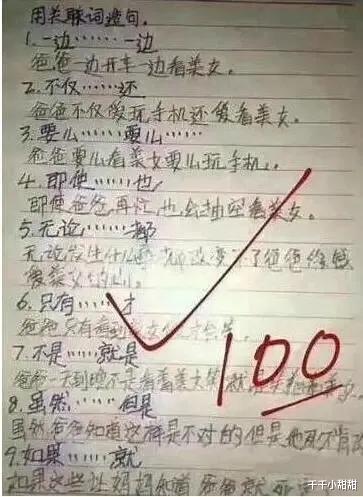 用关联词造句。
1.一边……一边
爸爸一边开车一边看美女。
2.不仅……还
爸爸不仅爱玩手机还爱看美女。
3.要么……要么……
爸爸要么看美女要么玩手机。
4.即使……也
即使爸爸再忙,也会抽空看美女。
5.无论……都
无论发生什么都改变不了爸爸
爱美女的心
6.只有……才
爸爸只有看到美女才会笑
7.不是……就是
爸爸一天到晚不是看着美女笑就是
8.虽然……但是
虽然爸爸知道这样是不对的但是他
9.如果……就
如果这些让妈妈知道爸爸就死定
100
千千小甜甜